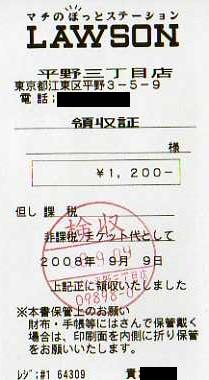 マチのほっとステーション
LAWSON
平野三丁目店
東京都江東区平野3-5-9
電話:
領収証
様
¥1,200-
但し 課税
非課税 チケット代として
2008年 9月 9日
上記正に領収いたしました
※本書保管上のお願い
財布・手帳等にはさんで保管戴く
場合は、印刷面を内側に折り保管
をお願いいたします。
レジ:#1 64309 責:
検収